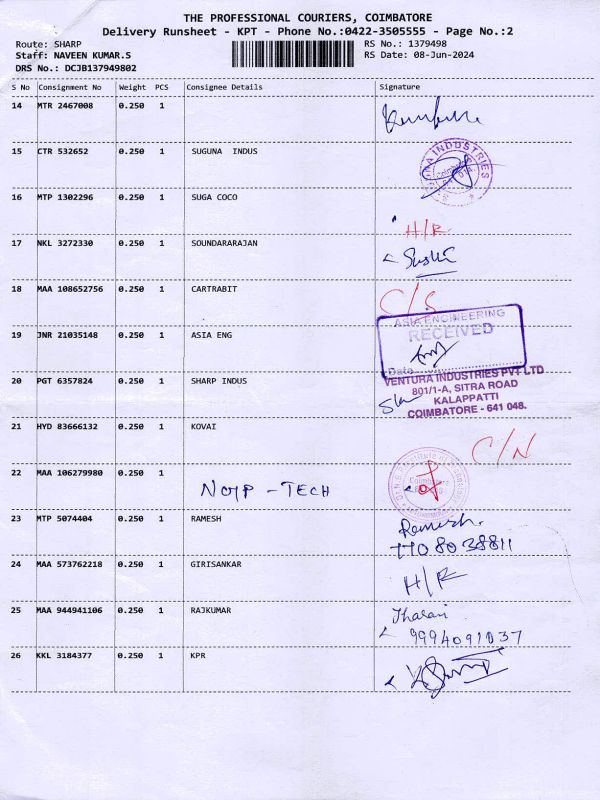 THE PROFESSIONAL COURIERS, COIMBATORE
Delivery Runsheet - KPT - Phone No.:0422-3505555 - Page No.:2
Route: SHARP
Staff: NAVEEN KUMAR.S
DRS No.: DCJB137949802
RS No.: 1379498
RS Date: 08-Jun-2024
S No Consignment No Weight PCS Consignee Details Signature
14 MTR 2467008 0.250 1
15 CTR 532652 0.250 1 SUGUNA INDUS
INDUSTRIES
16 MTP 1302296 0.250 1 SUGA COCO
H/R
17 NKL 3272330 0.250 1 SOUNDARARAJAN
18 MAA 108652756 0.250 1 CARTRABIT
C/S
19 JNR 21035148 0.250 1 ASIA ENG
ASIA ENGINEERING
RECEIVED
Date
20 PGT 6357824 0.250 1 SHARP INDUS
VENTURA INDUSTRIES PVT LTD
801/1-A, SITRA ROAD
KALAPPATTI
COIMBATORE - 641 048.
21 HYD 83666132 0.250 1 KOVAI
C/N
22 MAA 106279980 0.250 1
TECH
23 MTP 5074404 0.250 1 RAMESH
Ramesh.
7708038811
24 MAA 573762218 0.250 1 GIRISANKAR
H/R
25 MAA 944941106 0.250 1 RAJKUMAR
Tharani
9994091037
26 KKL 3184377 0.250 1 KPR